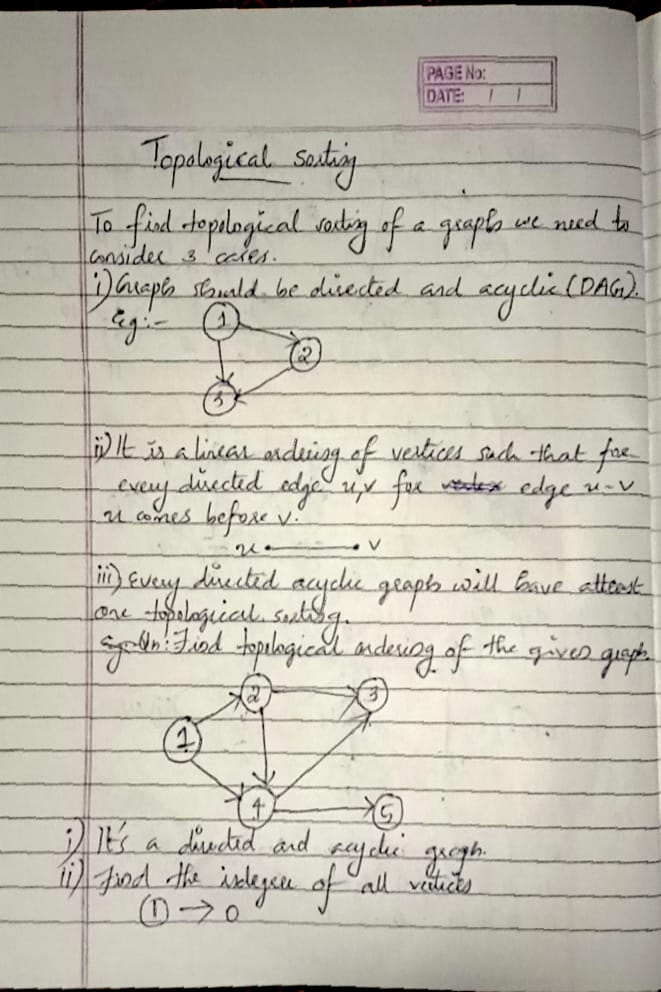 PAGE No:
DATE: / /
Topological sorting
To find topological sorting of a graph we need to
consider 3 cases.
i) Graph should be directed and acyclic (DAG).
Eg:-
1
2
3
ii) It is a linear ordering of vertices such that for
every directed edge u,v for edge u-v
u comes before v.
u v
iii) Every directed acyclic graph will have atleast
one topological sorting.
Qn: Find topological ordering of the given graph.
2 3
1
4 5
i) It's a directed and acyclic graph.
ii) Find the indegree of all vertices
① → 0